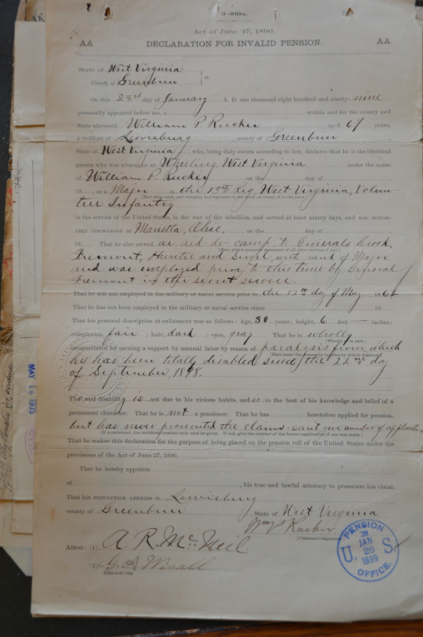 Act of June 27, 1890.
AA DECLARATION FOR INVALID PENSION. AA
State of West Virginia
County of Greenbrier
On this 23rd day of January A. D. one thousand eight hundred and ninety-nine
personally appeared before me, a within and for the county and
State aforesaid William P. Rucker aged 67 years,
a resident of Lewisburg county of Greenbrier
State of West Virginia, who, being duly sworn according to law, declares that he is the identical
person who was enrolled at Wheeling, West Virginia under the name
of William P. Rucker on the day of
18 as a Major in the 13th Reg. West Virginia Volun-
teer Infantry
in the service of the United States, in the war of the rebellion, and served at least ninety days, and was honor-
ably discharged at Marietta, Ohio. on the day of
18 That he also served as aid de camp to Generals Crook,
Fremont, Hunter and Sigel, with rank of Major
and was employed prior to this time by General
Fremont in the secret service.
That he was not employed in the military or naval service prior to the 13th day of May 1861
That he has not been employed in the military or naval service since 18
That his personal description at enlistment was as follows: Age, 30 years; height, 6 feet inches;
complexion, fair; hair, dark; eyes, gray That he is wholly
incapacitated for earning a support by manual labor by reason of paralysis from which
he has been totally disabled since the 22nd day
of September 1898.
That said disability is not due to his vicious habits and is to the best of his knowledge and belief of a
permanent character. That he is not a pensioner. That he has heretofore applied for pension.
but has never presented the claims. can't give number of application
That he makes this declaration for the purpose of being placed on the pension roll of the United States under the
provisions of the Act of June 27, 1890.
That he hereby appoints
of his true and lawful attorney to prosecute his claim.
That his post-office address is Lewisburg
county of Greenbrier State of West Virginia
Wm P Rucker
Attest: (1) A. R. McNeil
PENSION
JAN
26
1899
U. S.
OFFICE.